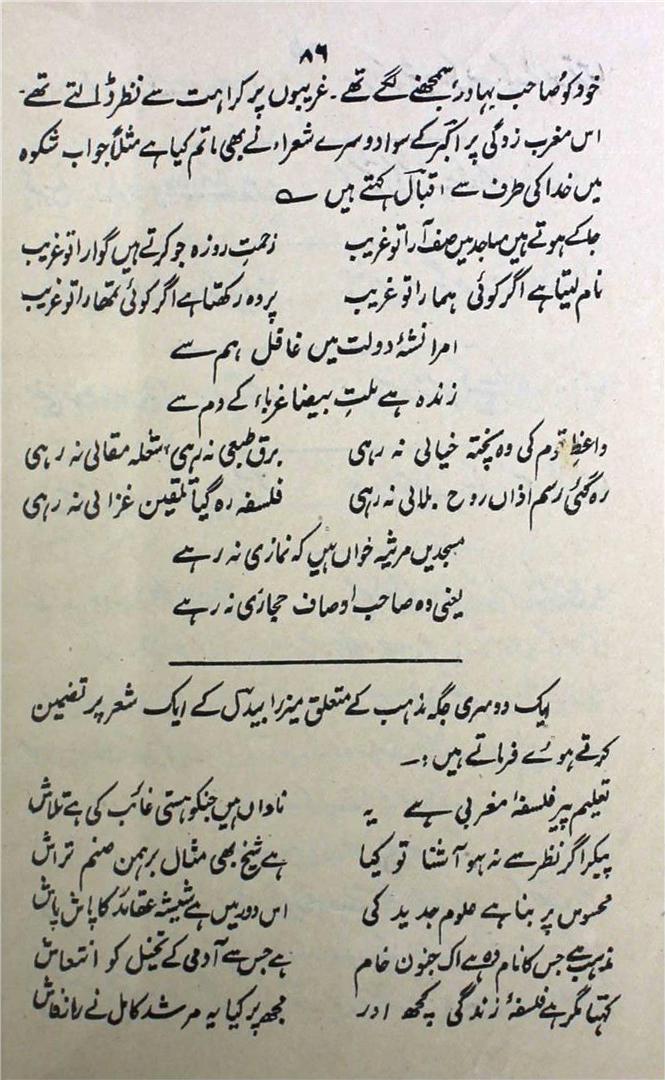 ۸۶
خود کو صاحب بہادر سمجھنے لگے تھے۔ غریبوں پر کراہت سے نظر ڈالتے تھے۔
اس مغرب زدگی پر اکبر کے سوا دوسرے شعراء نے بھی ماتم کیا ہے مثلاً جواب شکوہ
میں خدا کی طرف سے اقبال کہتے ہیں ؎
جا کے ہوتے ہیں مساجد میں صف آرا تو غریب زحمت روزہ جو کرتے ہیں گوارا تو غریب
نام لیتا ہے اگر کوئی ہمارا تو غریب پردہ رکھتا ہے اگر کوئی تمھارا تو غریب
امرا نشۂ دولت میں غافل ہم سے
زندہ ہے ملتِ بیضا غرباء کے دم سے
واعظِ قوم کی وہ پختہ خیالی نہ رہی برق طبعی نہ رہی، شعلہ مقالی نہ رہی
رہ گئی رسم اذاں روح بلالی نہ رہی فلسفہ رہ گیا تلقین غزالی نہ رہی
مسجدیں مرثیہ خواں ہیں کہ نمازی نہ رہے
یعنی وہ صاحب اوصاف حجازی نہ رہے
ایک دوسری جگہ مذہب کے متعلق میرزا بیدل کے ایک شعر پر تضمین
کرتے ہوئے فرماتے ہیں :۔
تعلیم پیر فلسفۂ مغربی ہے یہ ناداں ہیں جنکو ہستی غائب کی ہے تلاش
پیکر اگر نظر سے نہ ہو آشنا تو کیا ہے شیخ بھی مثال برہمن صنم تراش
محسوس پر بنا ہے علوم جدید کی اس دور میں ہے شیشہ عقائد کا پاش پاش
مذہب ہے جس کا نام وہ ہے اک جنون خام ہے جس سے آدمی کے تخیل کو انتعاش
کہتا مگر ہے فلسفۂ زندگی کچھ اور مجھ پر کیا یہ مرشد کامل نے راز فاش